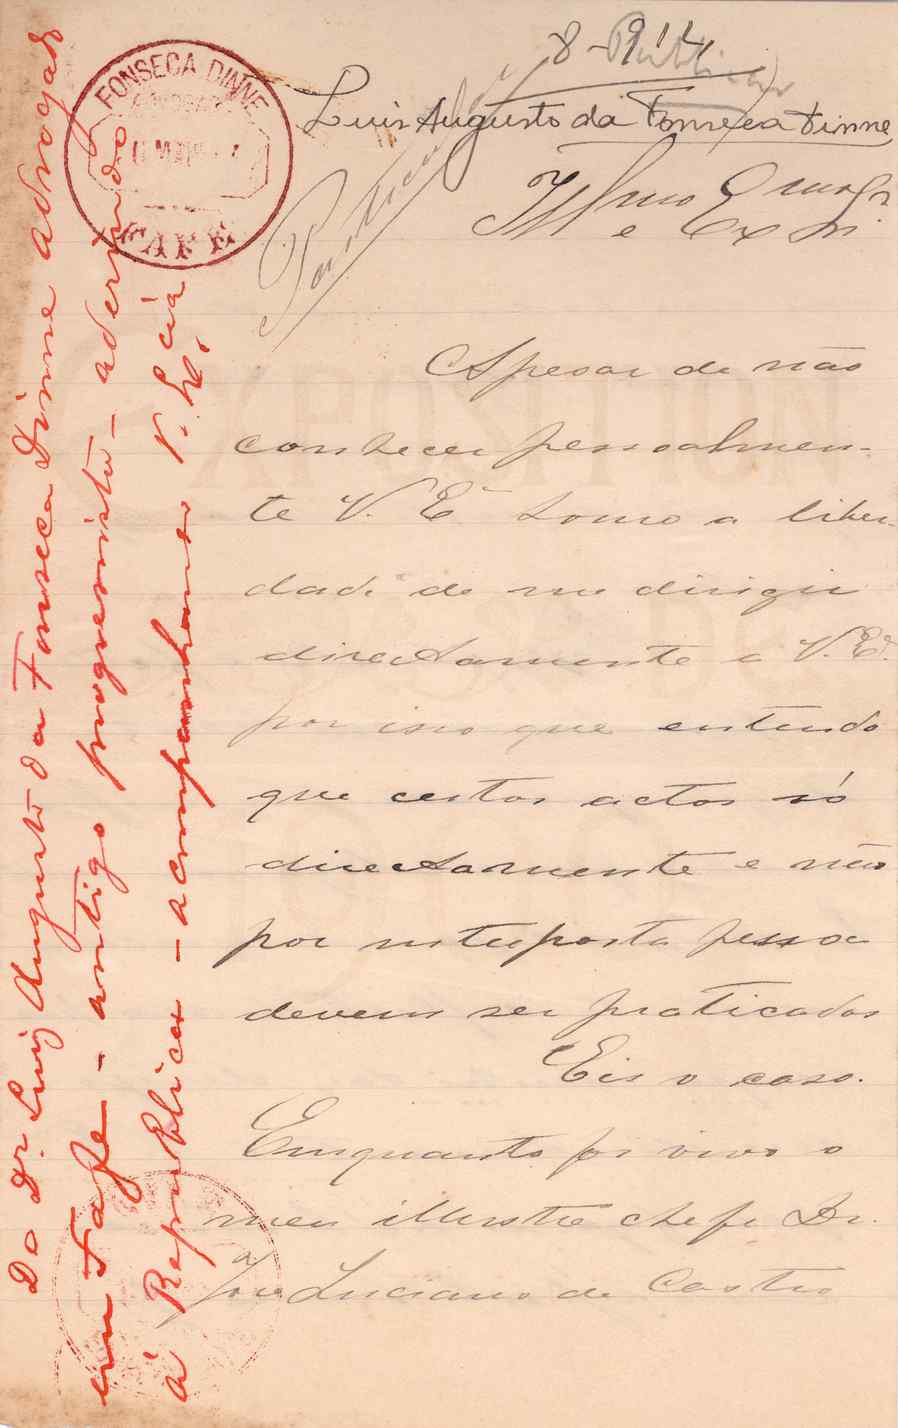 8-914
Publicar
Luis Augusto da Fonseca Dinne
Publicar
FONSECA DINNE
ADVOGADO
FAFE
Illmo e Ex Snr
Apesar de não
conhecer pessoalmen-
te V. Eª tomo a liber-
dade de me dirigir
directamente a V. Eª.
por isso que entendo
que certos actos só
directamente e não
por interposta pessoa
devem ser praticados
Eis o caso.
Emquanto foi vivo o
meu illustre chefe Dr.
José Luciano de Castro
Do Dr. Luiz Augusto da Fonseca Dinne advogado
em Fafe - antigo progressista - aderindo
á Republica - acompanhando V. Excia